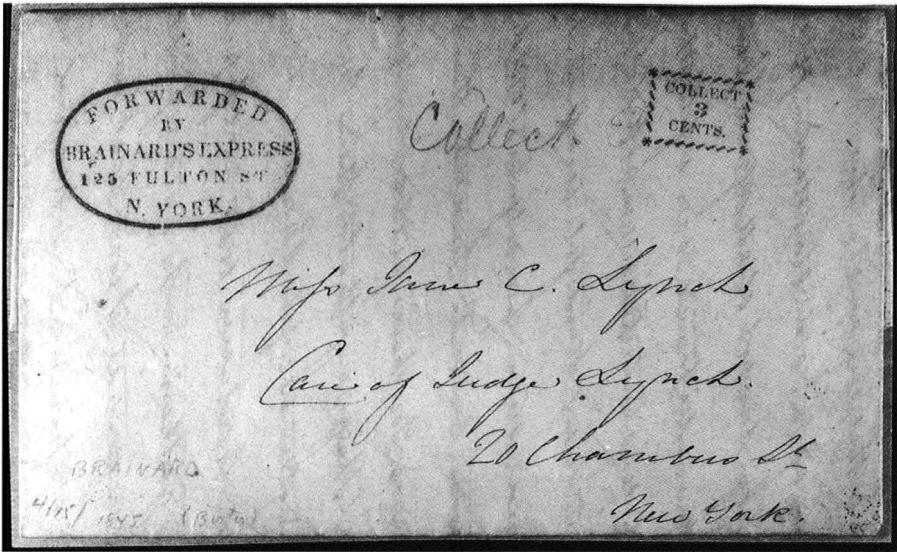 FORWARDED
BY
BRAINARD'S EXPRESS
125 FULTON ST
N. YORK.
Collect
COLLECT
3
CENTS.
Miss Jane C. Lynch
Care of Judge Lynch.
20 Chambers St
New York.
BRAINARD
4/15/1845